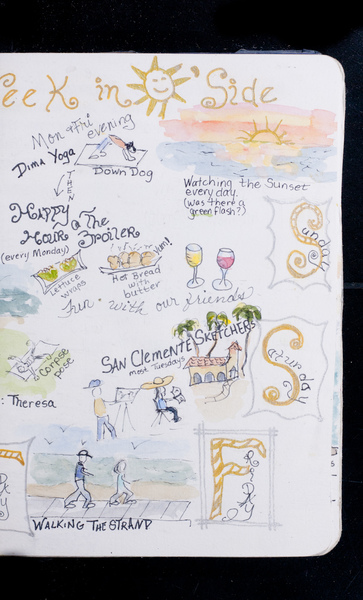 eek in O'Side
Mon & Fri evening
Dima Yoga
Down Dog
THEN
Watching the Sunset
every day
(was there a
green flash?)
Happy
Hour @ The
Broiler
(every Monday)
Lettuce
wraps
Yum!
Hot Bread
with
butter
Fun with our friends
Sunday
San Clemente Sketchers
most Tuesdays
Corpse
pose
: Theresa
Saturday
Friday
Walking The Strand